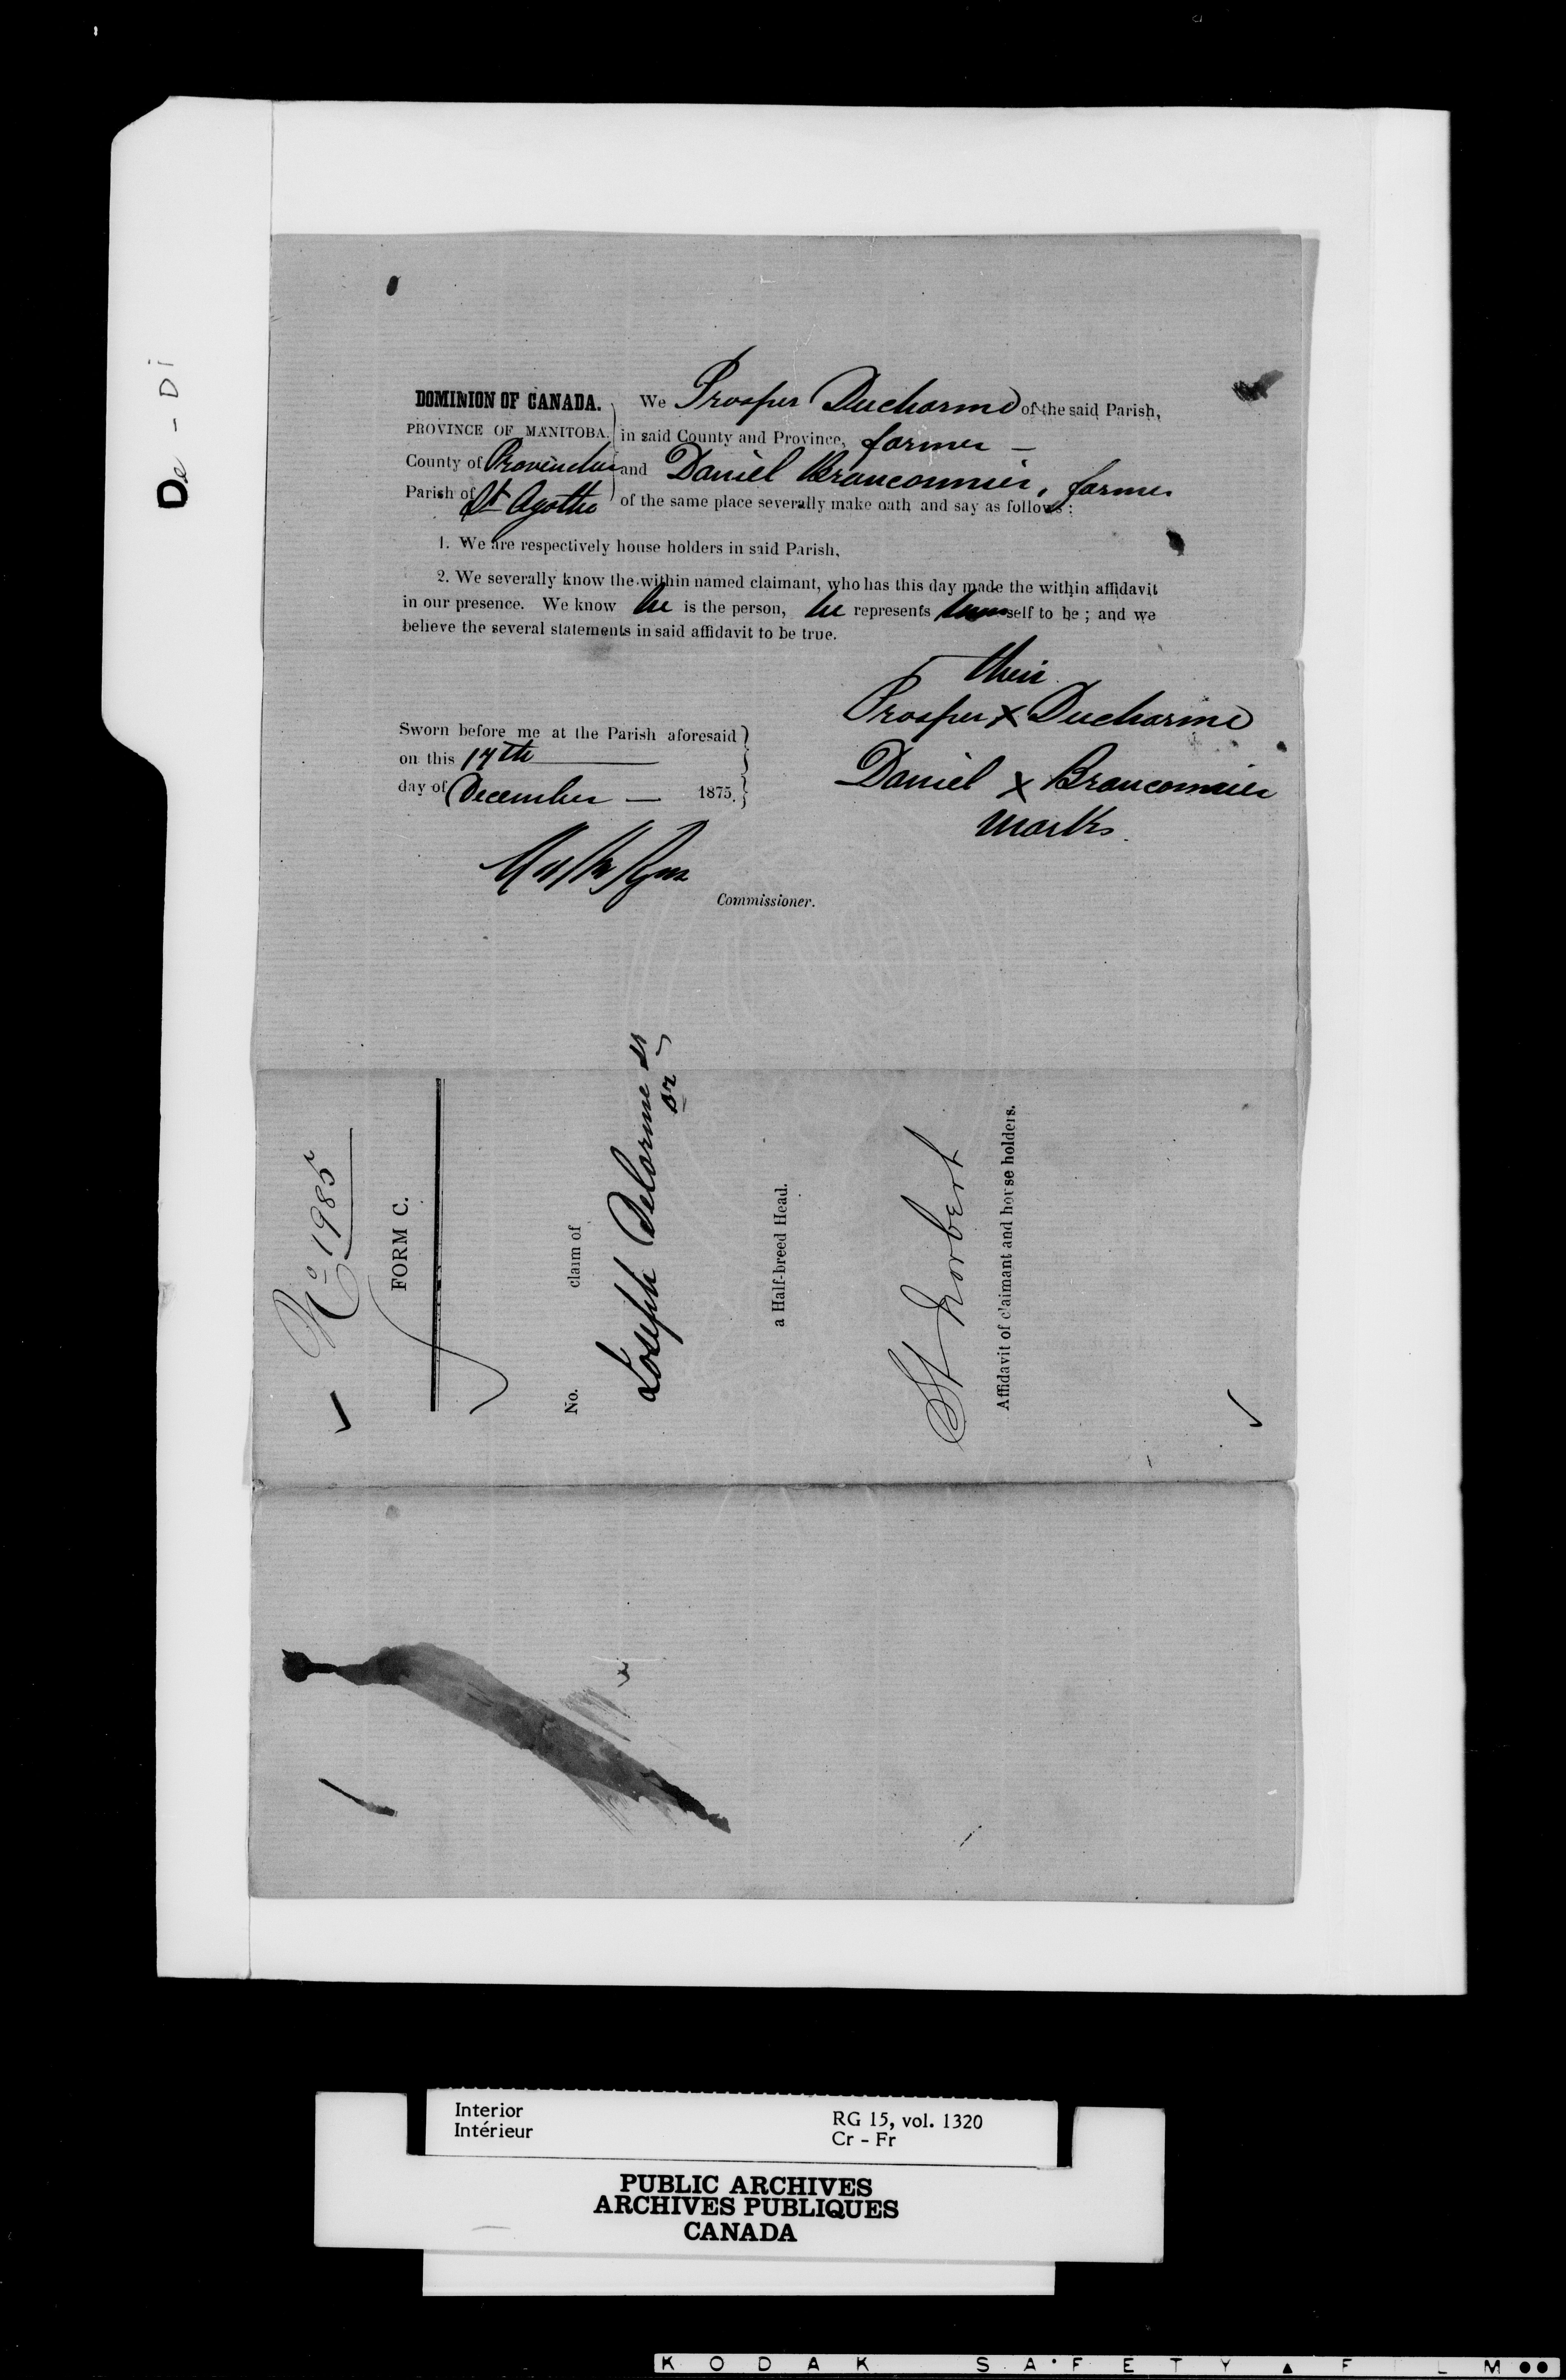 De - Di
DOMINION OF CANADA.
PROVINCE OF MANITOBA.
County of Provencher
Parish of St Agathe
We Prosper Ducharme of the said Parish,
in said County and Province, farmer —
and Daniel Brauconnier, farmer
of the same place severally make oath and say as follows:
1. We are respectively house holders in said Parish,
2. We severally know the within named claimant, who has this day made the within affidavit
in our presence. We know he is the person, he represents himself to be; and we
believe the several statements in said affidavit to be true.
their
Prosper X Ducharme
Daniel X Brauconnier
marks.
Sworn before me at the Parish aforesaid
on this 17th
day of December — 1875.
Commissioner.
No 1985
FORM C.
No. claim of
Joseph Delorme
sr
a Half-breed Head.
St Norbert
Affidavit of claimant and house holders.
Interior
Intérieur
RG 15, vol. 1320
Cr - Fr
PUBLIC ARCHIVES
ARCHIVES PUBLIQUES
CANADA
KODAK SAFETY FILM